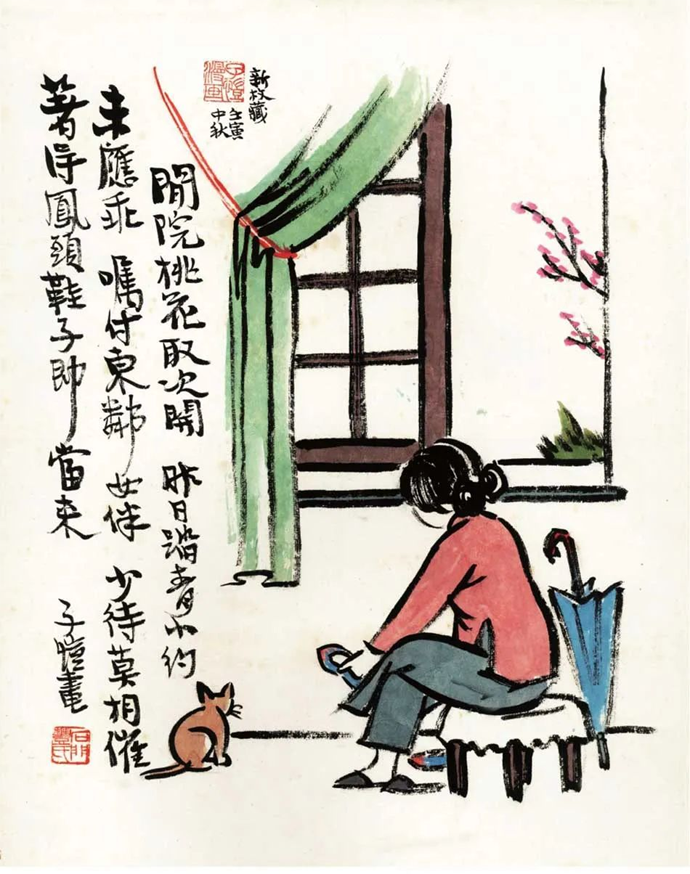 新枚藏
壬寅
中秋
子愷漫画
閒院桃花取次開 昨日踏青小約
未應乖 嘱付東鄰女伴 少待莫相催
著得鳳頭鞋子即當来
子愷畫
石門豐氏